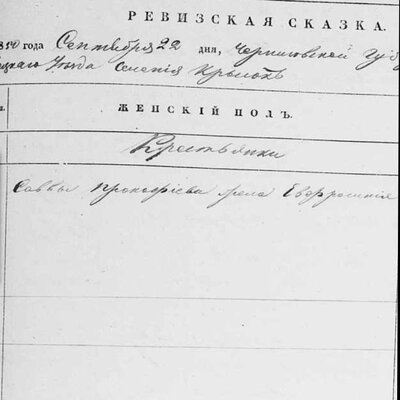 РЕВИЗСКАЯ СКАЗКА.
1850 года Сентября 22 дня, Черниговской Губ
Уезда Селения
ЖЕНСКІЙ ПОЛЪ.
Крестьянки
Саввы Прокофіева жена Евфросинія